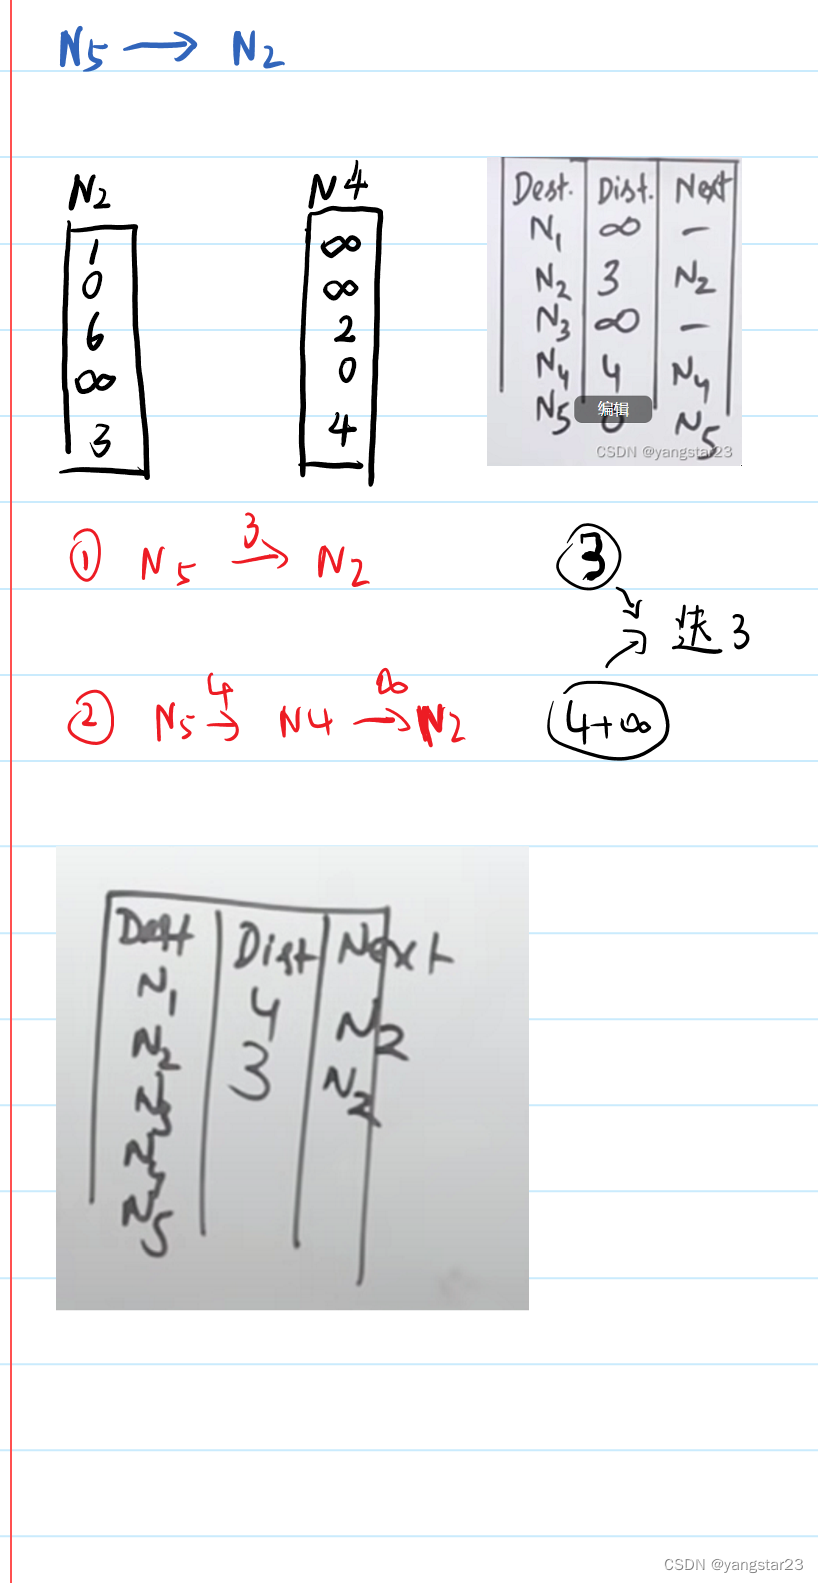 N5 → N2
N2
1
0
6
∞
3
N4
∞
∞
2
0
4
Dest. Dist. Next
N1 ∞ -
N2 3 N2
N3 ∞ -
N4 4 N4
N5 0 N5
编辑
CSDN @yangstar23
① N5 3→ N2
3
选 3
② N5 4→ N4 ∞→ N2
4+∞
Dest Dist Next
N1 4 N2
N2 3 N2
N3
N4
N5
CSDN @yangstar23